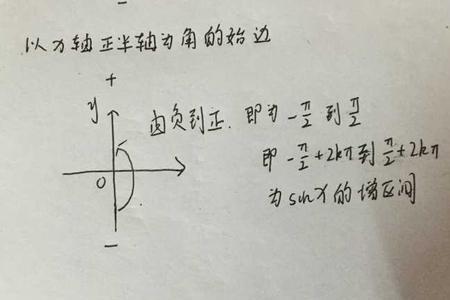 以x轴正半轴为角的始边
+
y
由负到正. 即为 -π/2 到 π/2
即 -π/2+2kπ到π/2+2kπ
O
为sinx的增区间
−